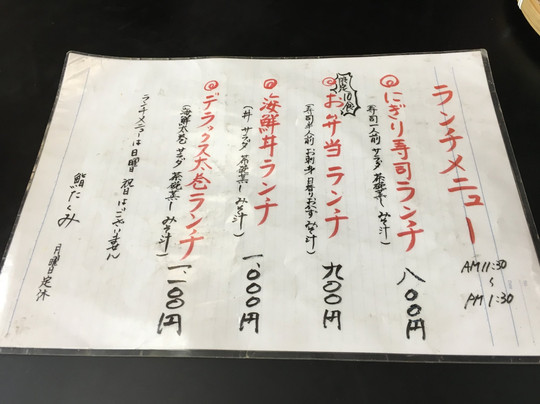 ランチメニュー
AM 11:30
〜
PM 1:30
にぎり寿司ランチ 八00円
(寿司一人前 サラダ 茶碗蒸し みそ汁)
限定10食
お弁当ランチ 九00円
(寿司半人前 お刺身 日替りおかず みそ汁)
海鮮丼ランチ 一、000円
(丼 サラダ 茶碗蒸し みそ汁)
デラックス太巻ランチ 一、一00円
(海鮮太巻 サラダ 茶碗蒸し みそ汁)
ランチメニューは日曜 祝日はございません
鮨たくみ
月曜日定休